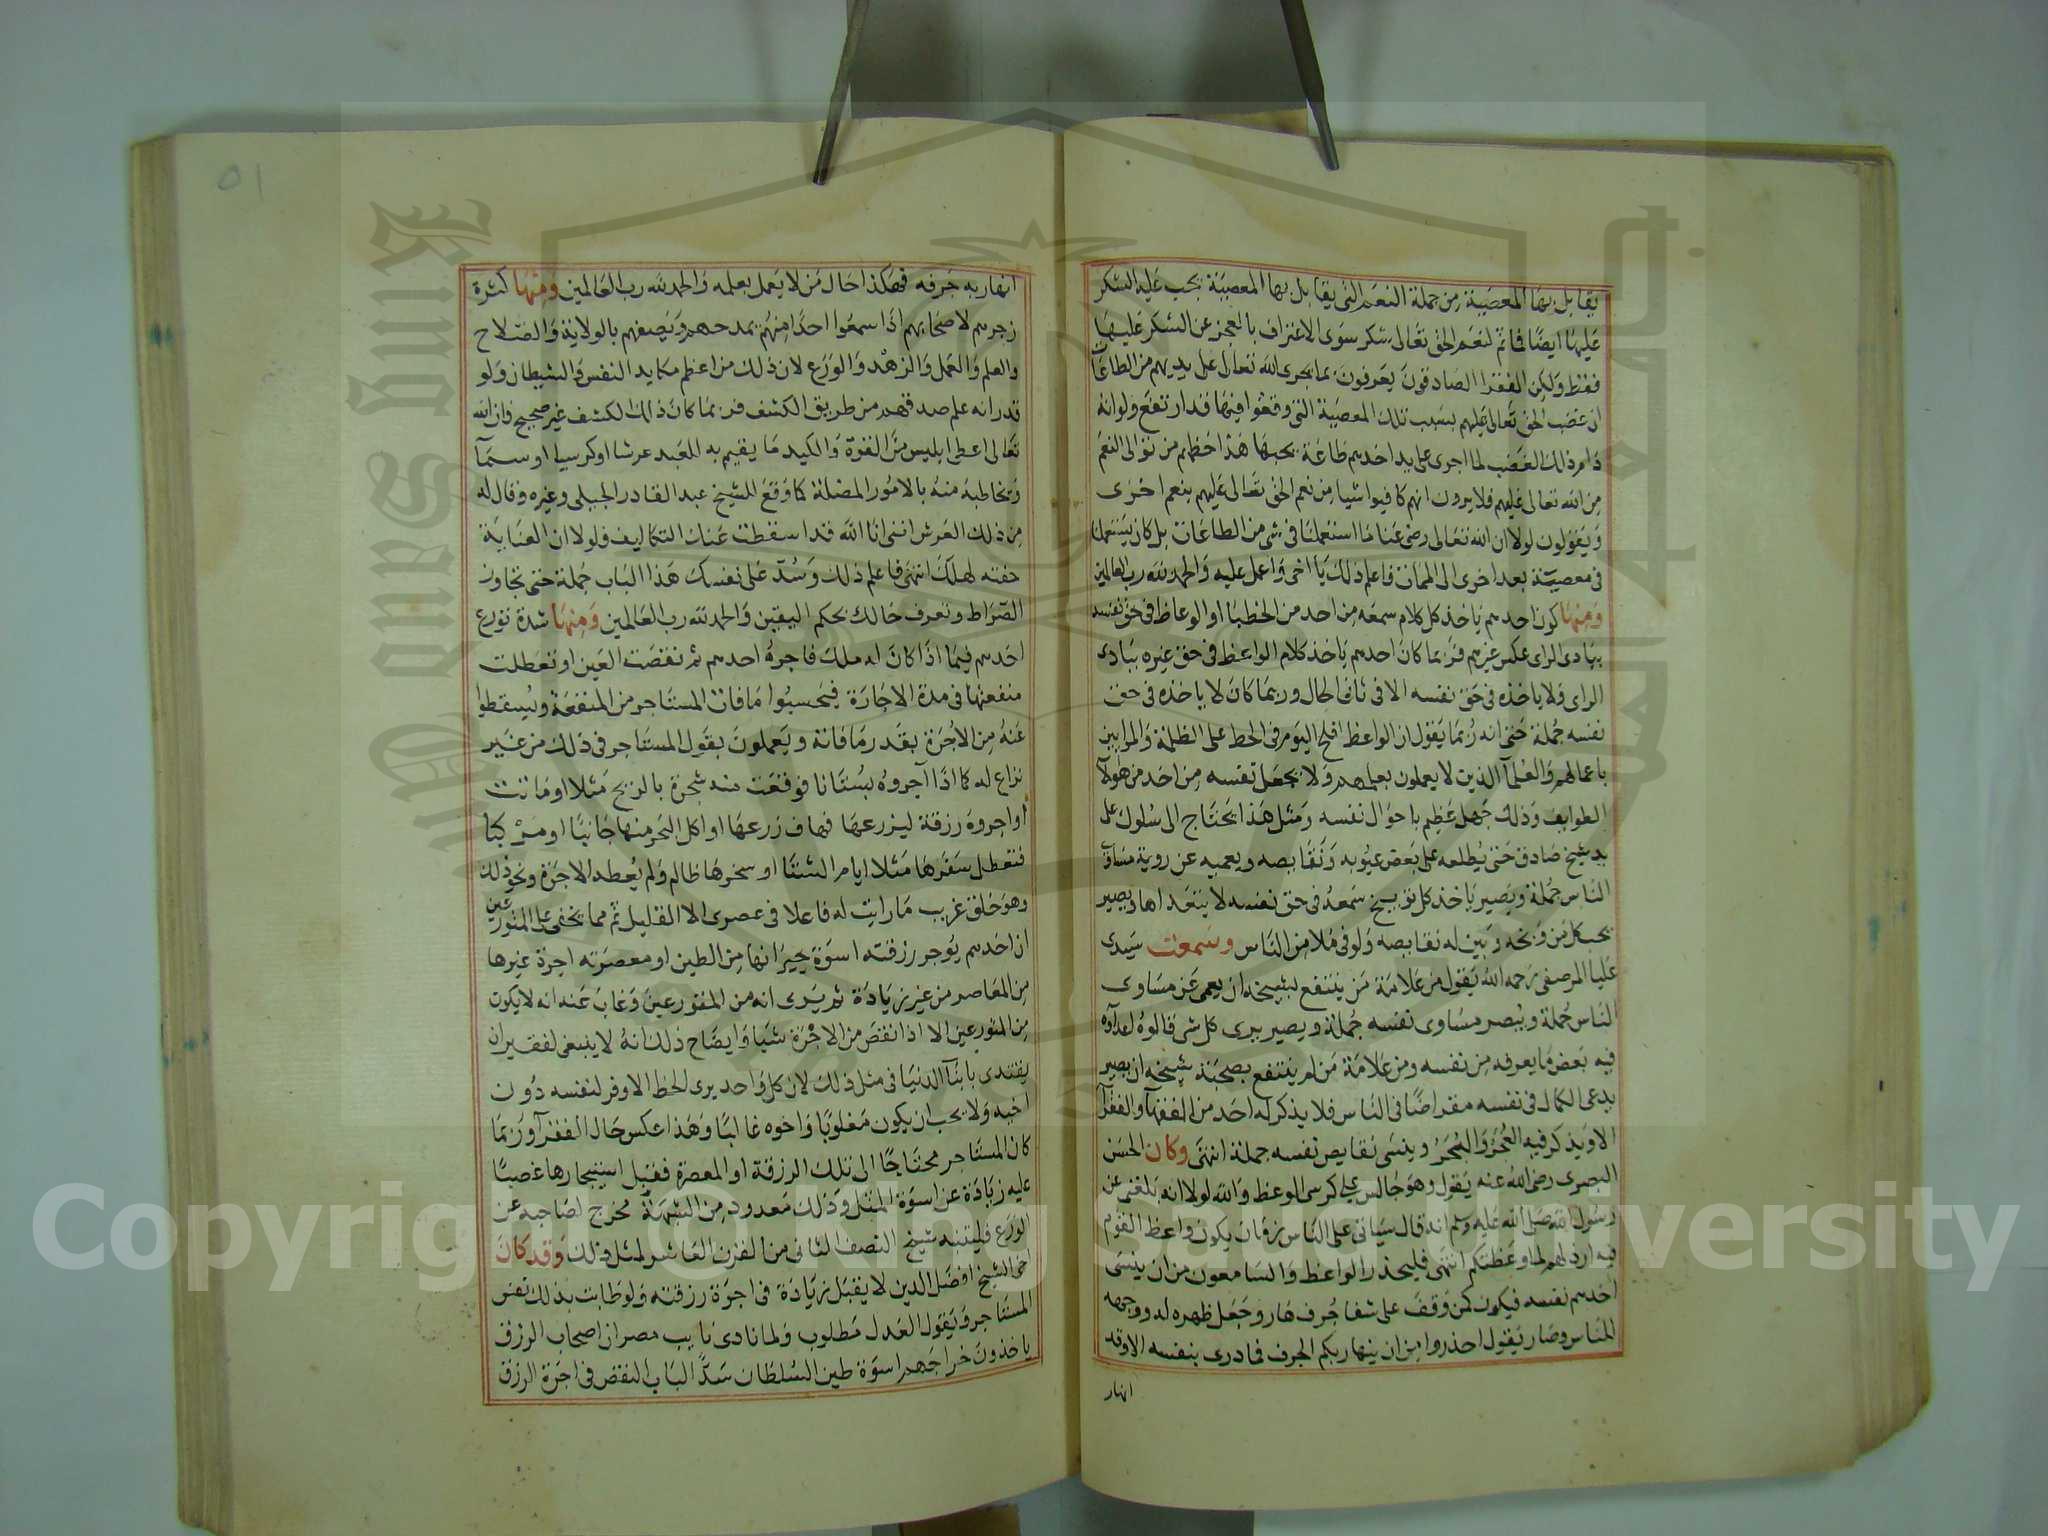 يقابل بها المعصية من جملة النعم التى يقابل بها المعصية يجب عليه الشكر
عليها ايضا فما ثم لنعم الحق تعالى شكر سوى الاعتراف بالعجز عن الشكر عليها
فقط ولكن الفقرا الصادقون يعرفون بما يجرى الله تعالى على يديهم من الطاعات
ان غضب الحق تعالى عليهم بسبب تلك المعصية التى وقعوا فيها قد ارتفع ولو انه
دام ذلك الغضب لما اجرى على يد احدهم طاعة يحبها هذا حظهم من توالى النعم
من الله تعالى عليهم فلا يرون انهم كافيوا شيا من نعم الحق تعالى عليهم بنعم اخرى
ويقولون لولا ان الله تعالى رضى عنا ما استعملنا فى شى من الطاعات بل كان يستعملنا
فى معصية بعد اخرى الى الممات فاعلم ذلك يا اخى واعمل عليه والحمد لله رب العالمين
ومنها كون احدهم ياخذ كل كلام سمعه من احد من الخطبا او الوعاظ فى حق نفسه
ببادى الراى عكس غيرهم فربما كان احدهم ياخذ كلام الواعظ فى حق غيره ببادى
الراى ولا ياخذه فى حق نفسه الا فى ثانى الحال وربما كان لا ياخذه فى حق
نفسه جملة حتى انه ربما يقول ان الواعظ افلح اليوم فى الحط على الظلمة والمرابين
باعمالهم والعلمآ الذين لا يعملون بعلمهم ولا يجعل نفسه من احد من هولآ
الطوايف وذلك جهل عظيم باحوال نفسه ومثل هذا يحتاج الى سلوك على
يد شيخ صادق حتى يطلعه على بعض عيوبه ونقايصه ويعميه عن روية مساوى
الناس جملة ويصير ياخذ كل توبيخ سمعه فى حق نفسه لا يتعداها ويصير
يحب كل من وبخه وبين له نقايصه ولو فى ملا من الناس وسمعت سيدى
عليا المرصفى رحمه الله يقول من علامة من ينتفع بشيخه ان يعمى عن مساوى
الناس جملة ويبصر مساوى نفسه جملة ويصير يرى كل شى قالوه اعداوه
فيه بعض ما يعرفه من نفسه ومن علامة من لم ينتفع بصحبة شيخه ان يصير
يدعى الكمال فى نفسه مقراضا فى الناس فلا يذكر له احد من الفقهآ والفقرآ
الا ويذكر فيه العجر والبجر وينسى نقايص نفسه جملة انتهى وكان الحسن
البصرى رضى الله عنه يقول وهو جالس على كرسى الوعظ والله لولا انه بلغنى عن
رسول الله صلى الله عليه وسلم انه قال سياتى على الناس زمان يكون واعظ القوم
فيه ارذلهم لما وعظتكم انتهى فليحذر الواعظ والسامعون من ان ينسى
احدهم نفسه فيكون كمن وقف على شفا جرف هار وجعل ظهره له ووجهه
للناس وصار يقول احذروا من ان ينهار بكم الجرف فما درى بنفسه الا وقد
انهار
٥١
انهار به جرفه فهكذا حال من لا يعمل بعلمه والحمد لله رب العالمين ومنها كثرة
زجرهم لاصحابهم اذا سمعوا احدا منهم يمدحهم ويصفهم بالولاية والصلاح
والعلم والعمل والزهد والورع لان ذلك من اعظم مكايد النفس والشيطان ولو
قدر انه علم صدقهم من طريق الكشف فربما كان ذلك الكشف غير صحيح فان الله
تعالى اعطى ابليس من القوة والكيد ما يقيم به للعبد عرشا او كرسيا او سمآ
ويخاطبه منه بالامور المضلة كما وقع للشيخ عبد القادر الجيلى وغيره وقال له
من ذلك العرش اننى انا الله قد اسقطت عنك التكاليف فلولا ان العناية
حفته لهلك انتهى فاعلم ذلك وسد على نفسك هذا الباب جملة حتى تجاوز
الصراط وتعرف حالك بحكم اليقين والحمد لله رب العالمين ومنها شدة تورع
احدهم فيما اذا كان له ملك فاجره احدهم ثم نقصت العين او تعطلت
منفعتها فى مدة الاجارة فيحسبوا ما فات المستاجر من المنفعة ويسقطوا
عنه من الاجرة بقدر ما فاته ويعملون بقول المستاجر فى ذلك من غير
نزاع له كما اذا آجروه بستانا فوقعت منه شجرة بالريح مثلا او ماتت
او اجروه رزقة ليزرعها فما زرعها او اكل البحر منها جانبا او مركبا
فتعطل سفرها مثلا ايام الشتا او سخرها ظالم ولم يعطه الاجرة ونحو ذلك
وهو خلق غريب ما رايت له فاعلا فى عصرى الا القليل ثم مما يخفى على المتورعين
ان احدهم يوجر رزقته اسوة جيرانها من الطين او معصرته اجرة غيرها
من المعاصر من غير زيادة ثم يرى انه من المتورعين وغاب عنه انه لا يكون
من المتورعين الا اذا نقص من الاجرة شيا وايضاح ذلك انه لا ينبغى لفقير ان
يقتدى بابنآ الدنيا فى مثل ذلك لان كل واحد يرى الحظ الاوفر لنفسه دون
اخيه ولا يحب ان يكون مغلوبا واخوه غالبا وهذا عكس حال الفقرآ وربما
كان المستاجر محتاجا الى تلك الرزقة او المعصرة فقبل استيجارها غصبا
عليه زيادة عن اسوة المثل وذلك معدود من الشبهة مخرج لصاحبه عن
الورع فليتنبه شيخ النصف الثانى من القرن العاشر لمثل ذلك وقد كان
اخى الشيخ افضل الدين لا يقبل زيادة فى اجرة رزقته ولو طابت بذلك نفس
المستاجر ويقول العدل مطلوب ولما نادى نايب مصر ان اصحاب الرزق
ياخذون خراجهم اسوة طين السلطان سدا لباب النقص فى اجرة الرزق
Copyright © King Saud University